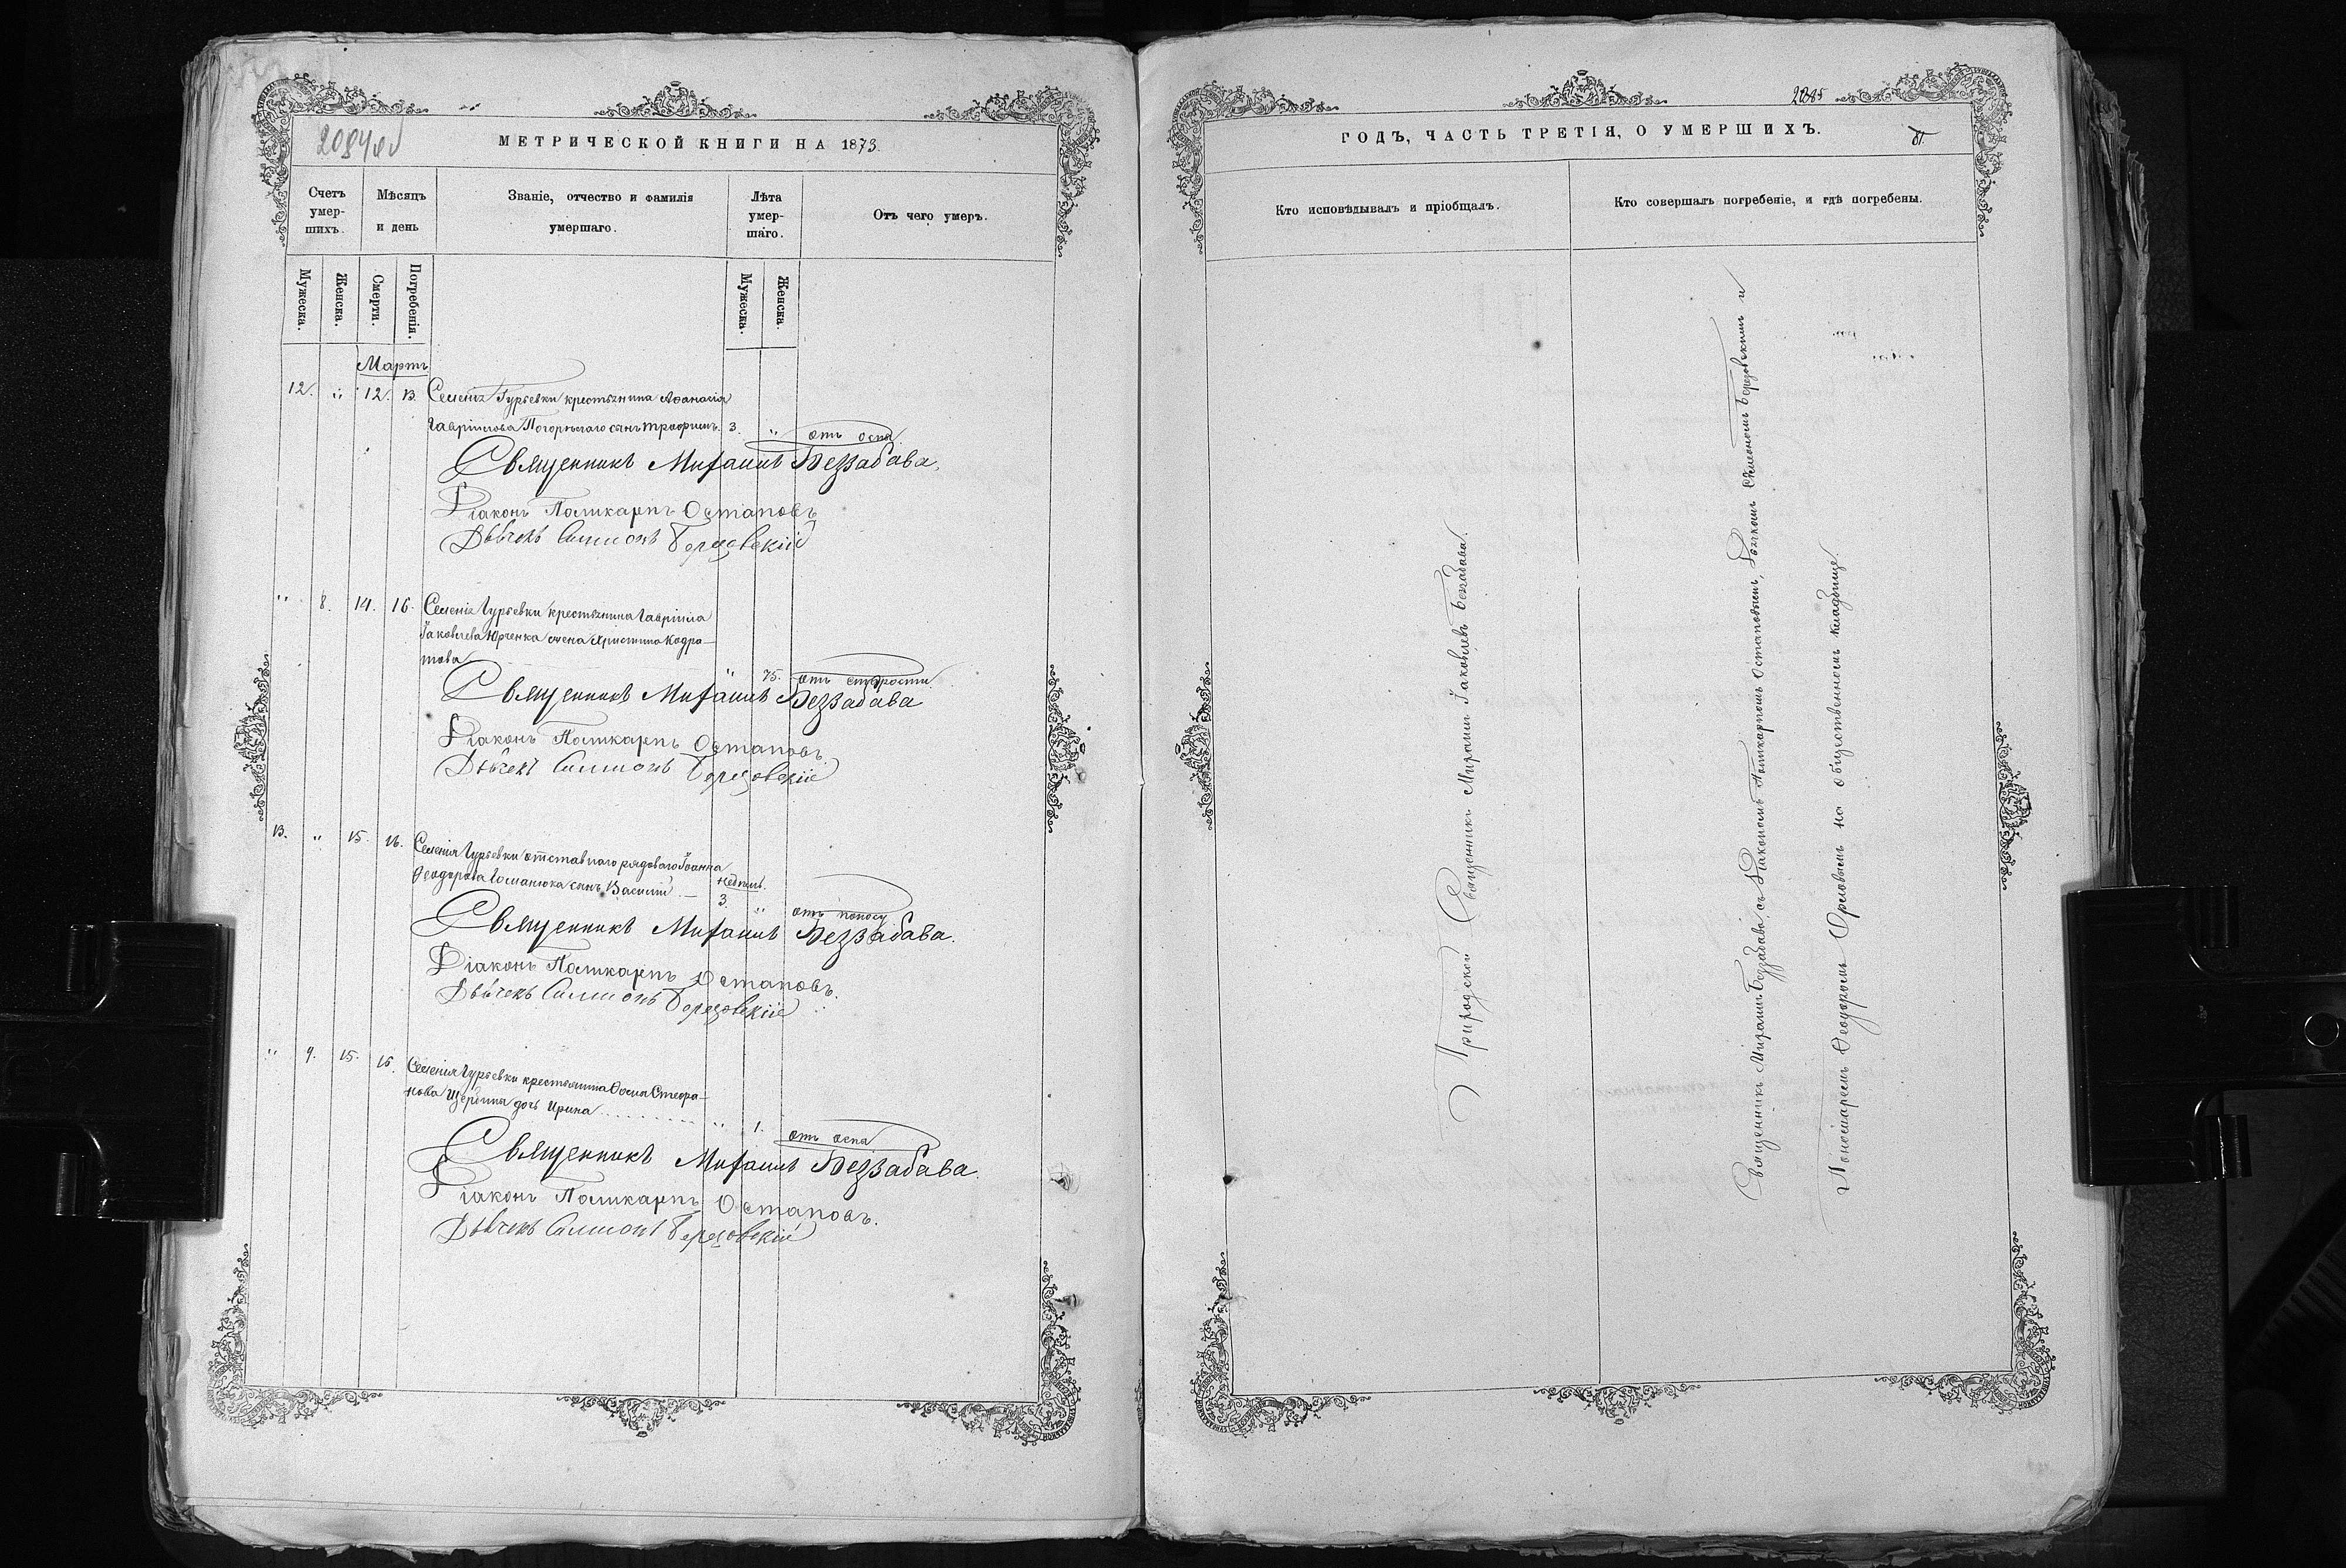 2084об
МЕТРИЧЕСКОЙ КНИГИ НА 1873.
Счетъ умер- шихъ.
Мѣсяцъ и день
Званіе, отчество и фамилія умершаго.
Лѣта умер- шаго.
Отъ чего умеръ.
Мужеска.
Женска.
Смерти.
Погребенія.
Мужеска.
Женска.
Мартъ
12. " 12. 13. Селенія Гурьевки крестьянина Аѳанасія
Гавріилова Погорѣлаго сынъ Трофимъ. 3. " отъ оспы.
Священникъ Михаилъ Беззабава.
Діаконъ Поликарпъ Остаповъ
Дьячекъ Симеонъ Березовскій
" 8. 14. 16. Селенія Гурьевки крестьянина Гавріила
Іаковлева Юрченка жена Христина Кодра-
това " 75. отъ старости.
Священникъ Михаилъ Беззабава
Діаконъ Поликарпъ Остаповъ.
Дьячекъ Симеонъ Березовскій
13. " 15. 16. Селенія Гурьевки отставнаго рядоваго Іоанна
Ѳеодорова Гоманюка сынъ Василій — недѣль. 3. " отъ поносу
Священникъ Михаилъ Беззабава.
Діаконъ Поликарпъ Остаповъ.
Дьячекъ Симеонъ Березовскій
" 9. 15. 16. Селенія Гурьевки крестьянина Ѳомы Стефа-
нова Щербины дочь Ирина " 1. отъ оспы
Священникъ Михаилъ Беззабава.
Діаконъ Поликарпъ Остаповъ.
Дьячекъ Симеонъ Березовскій
2085
ГОДЪ, ЧАСТЬ ТРЕТІЯ, О УМЕРШИХЪ.
Кто исповѣдывалъ и пріобщалъ.
Кто совершалъ погребеніе, и гдѣ погребены.
Приходской Священникъ Михаилъ Іаковлевъ Беззабава.
Священникъ Михаилъ Беззабава, съ Діакономъ Поликарпомъ Остаповымъ, Дьячкомъ Симеономъ Березовскимъ и
Пономаремъ Ѳеодоромъ Орловымъ на общественномъ кладбище.